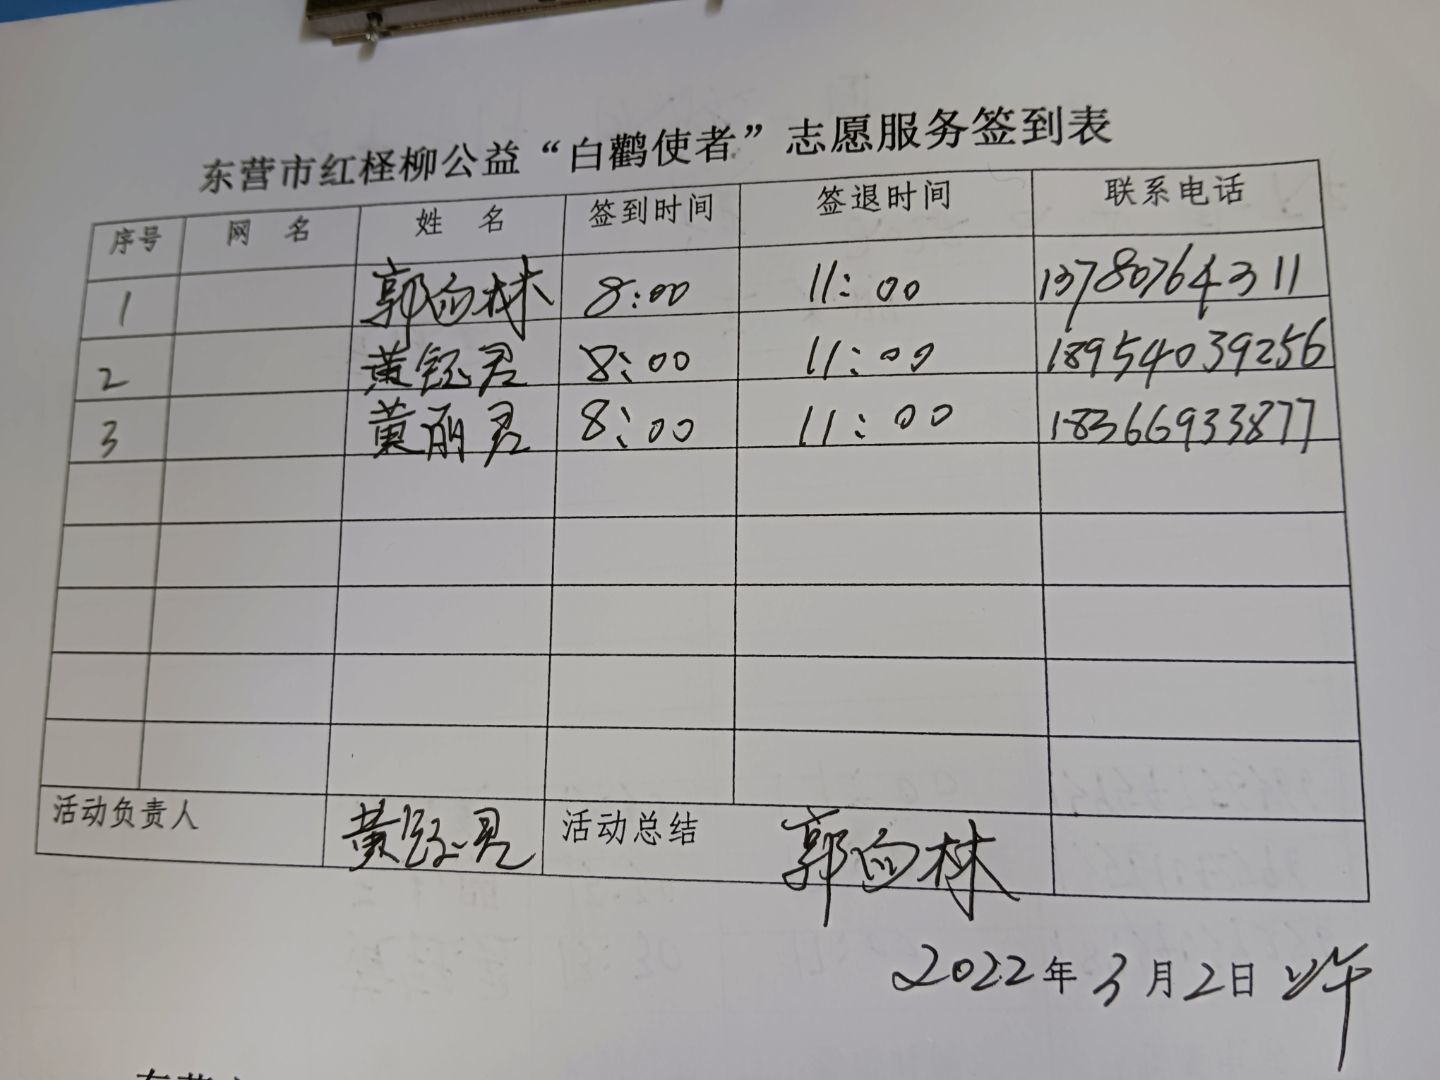 东营市红柽柳公益“白鹳使者”志愿服务签到表
序号 网 名 姓 名 签到时间 签退时间 联系电话
1 郭向林 8:00 11:00 13780764311
2 黄钰君 8:00 11:00 18954039256
3 黄丽君 8:00 11:00 18366933877
活动负责人 黄钰君 活动总结 郭向林
2022年3月2日 上午